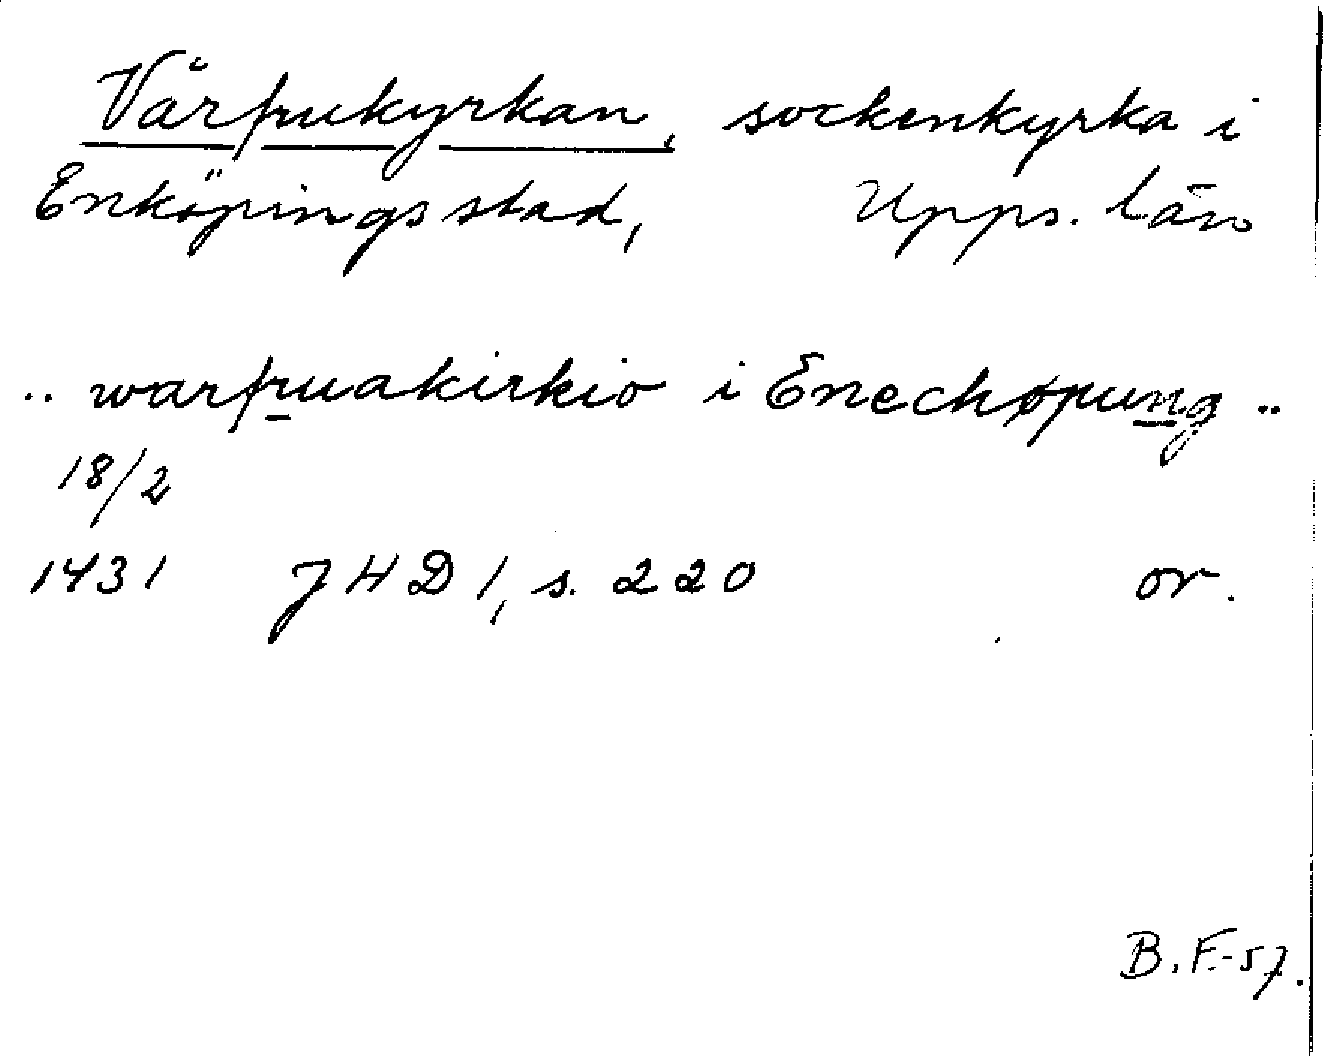 Vårfrukyrkan, sockenkyrka i
Enköpings stad, Upps. län
.. warfruakirkio i Enechøpung ..
18/2
1431 JHD 1, s. 220 or.
B.F.-57.